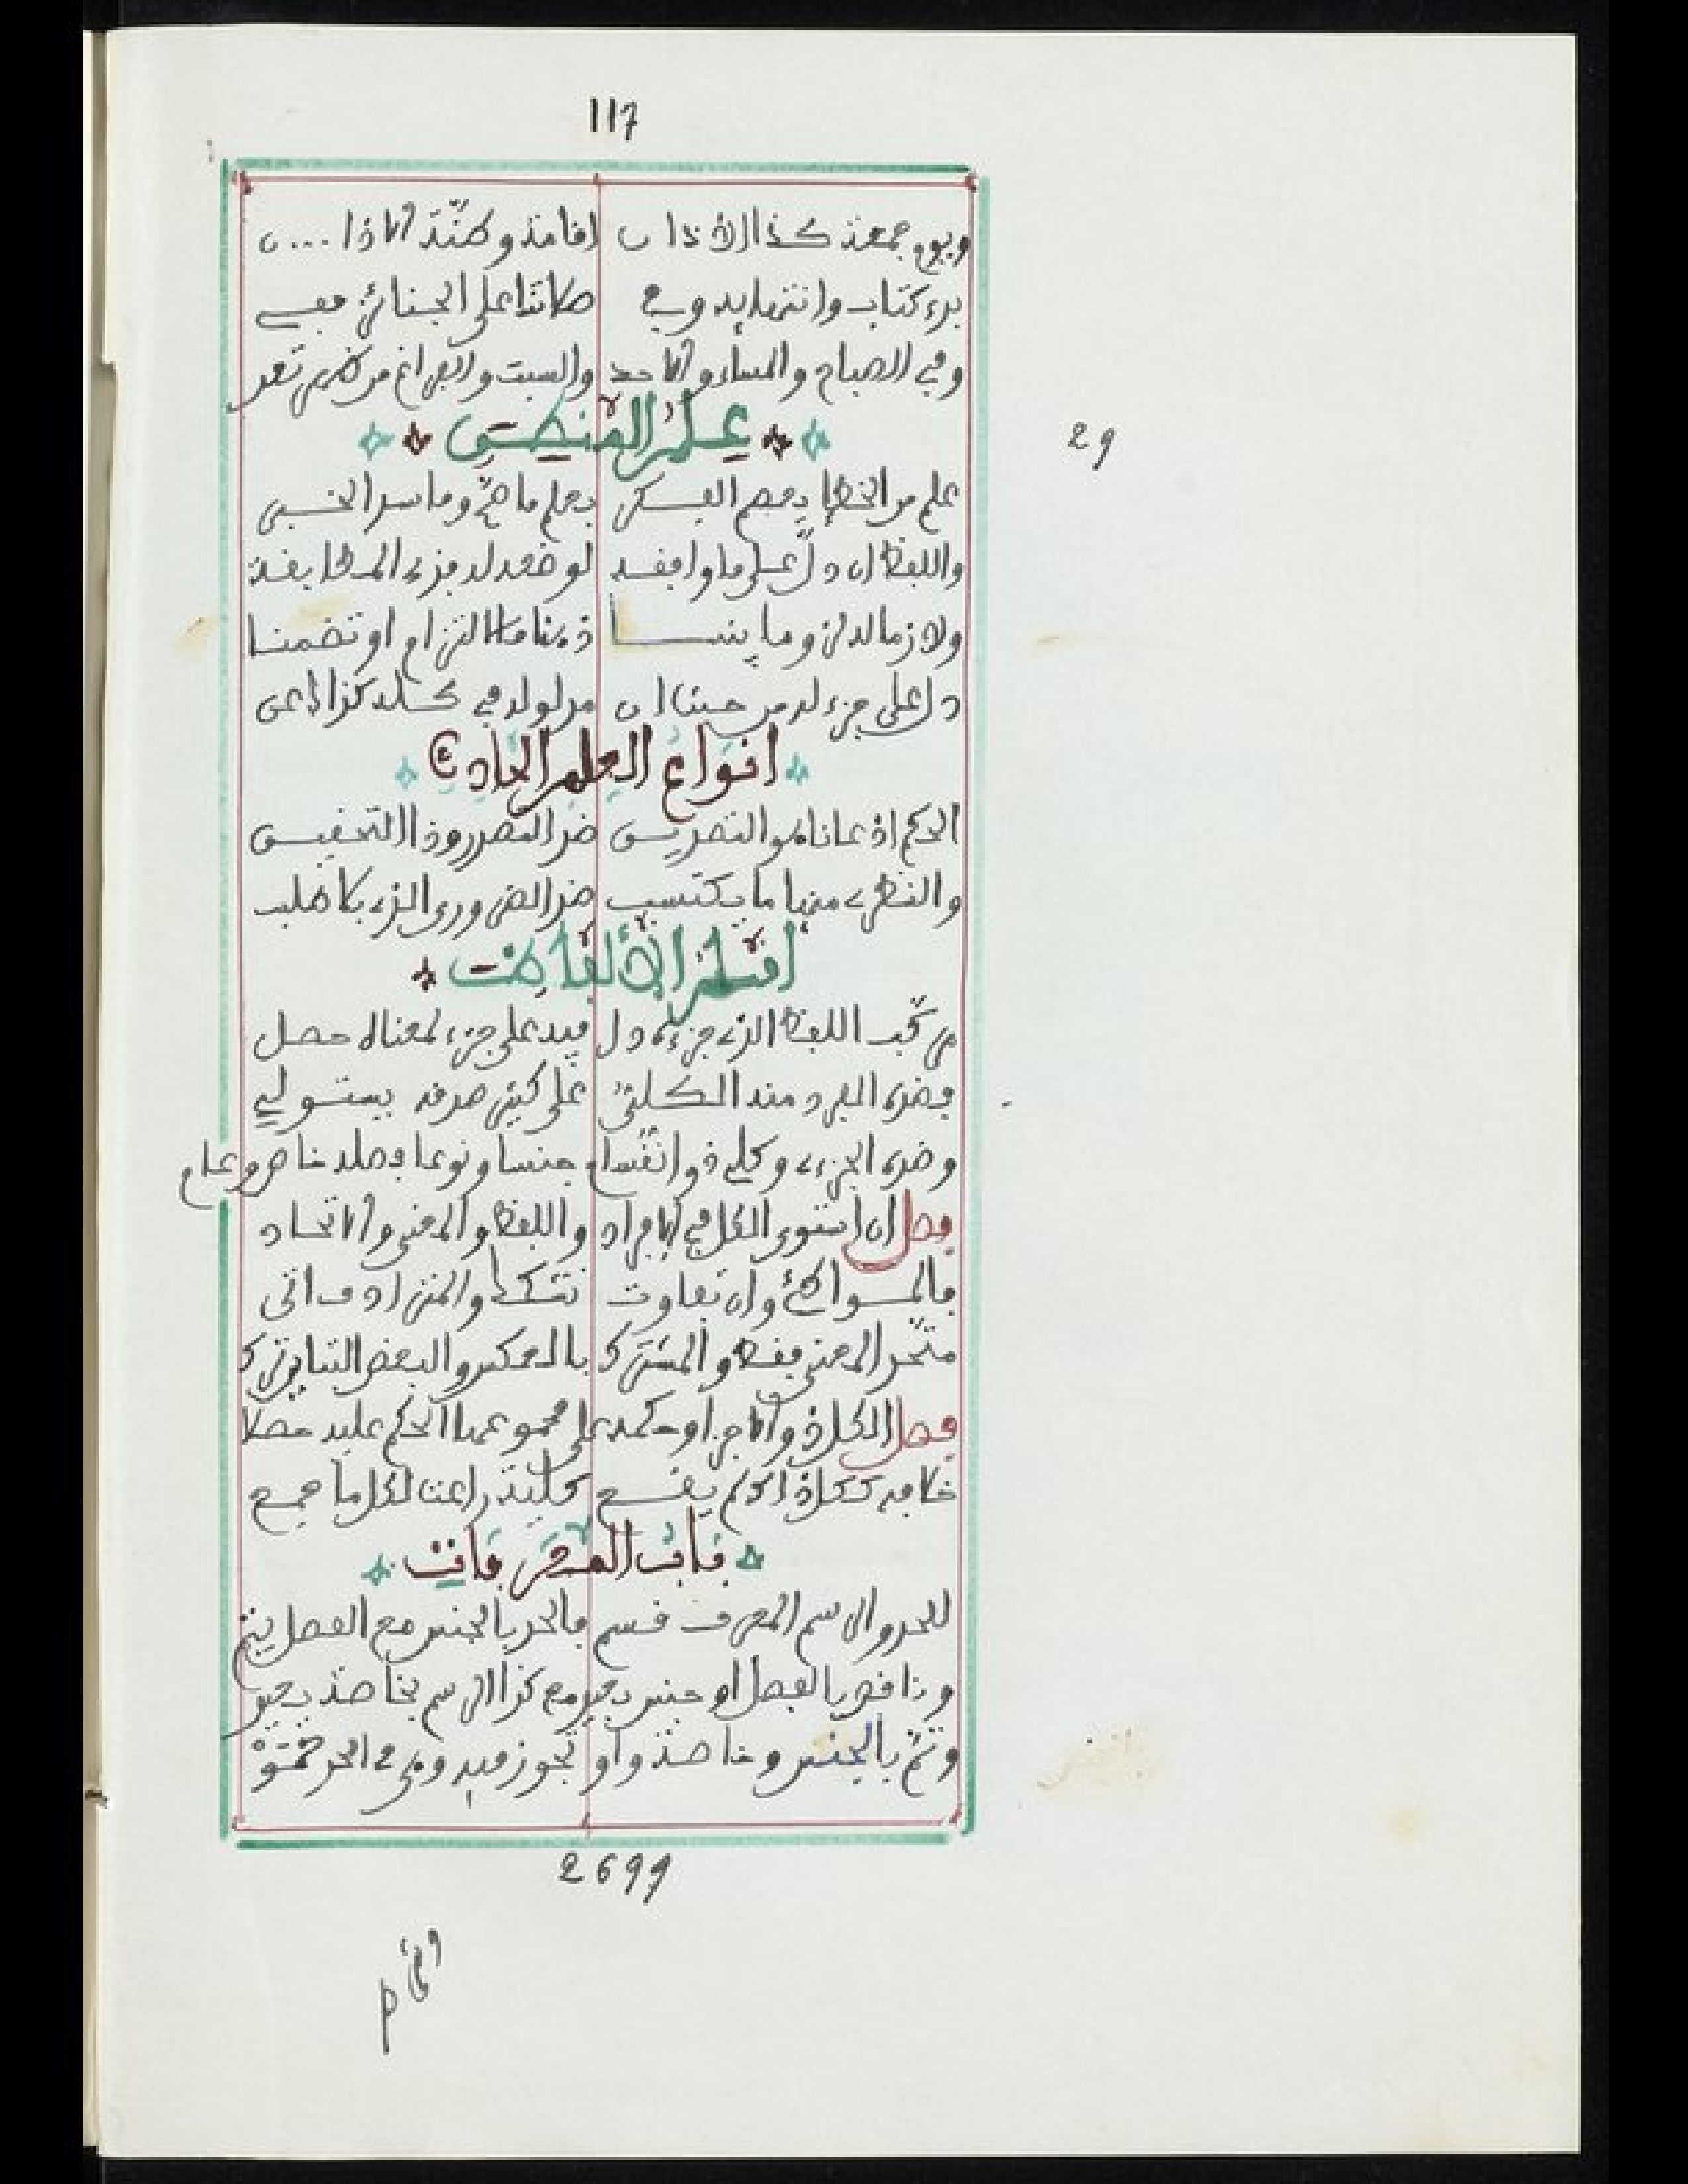 117
ويوم جمعة كذا الأذان إقامة وطنة الاذا...ن
بدء كتاب وانتهايه وفي صلاتنا على الجنائز
وفي الصباح والمساء والاحد والسبت والفراغ من
علم المنطق
29
علم من الخطا يعصم الفكر يعلم ما صح وما
واللفظ ان دل على ما وافقه لو ضعه له المطابقة
ولازما له وما ذهنا التزام او تضمنا
دل على جزء له من حيث ان مدلوله في كله كذا
انواع العلم الحادث
الحكم اذعانا هو التصديق ضد التصور وذا التحقيق
والنظري منها ما يكتسب ضد الضروري الذي بلا طلب
الالفاظ
مركب اللفظ الذي جزءه دل فيه على جزء لمعناه حصل
فضده المفرد منه الكلي على كثير صدقه يستولي
وضده الجزءي وكلي ذو انقسام جنسا ونوعا فصله خاص وعام
فصل ان استوى الكل في الافراد واللفظ والمعنى والاتحاد
فالمتواطئ وان تفاوت تشككا والمترادف اتى
متحد المعنى فقط والمشترك بالعكس والبعض التباين
فصل الكل ذو الاجزا وحكمه على مجموع عما الحكم عليه حصلا
كلية لكل ما جمع
باب المعرفات
للحد والرسم المعرف قسم فالحد بالجنس مع الفصل يتم
وناقص بالفصل او جنس كذا الرسم بخاصة
وتم بالجنس وخاصة واو تجوز فيه وفي الحد
2699